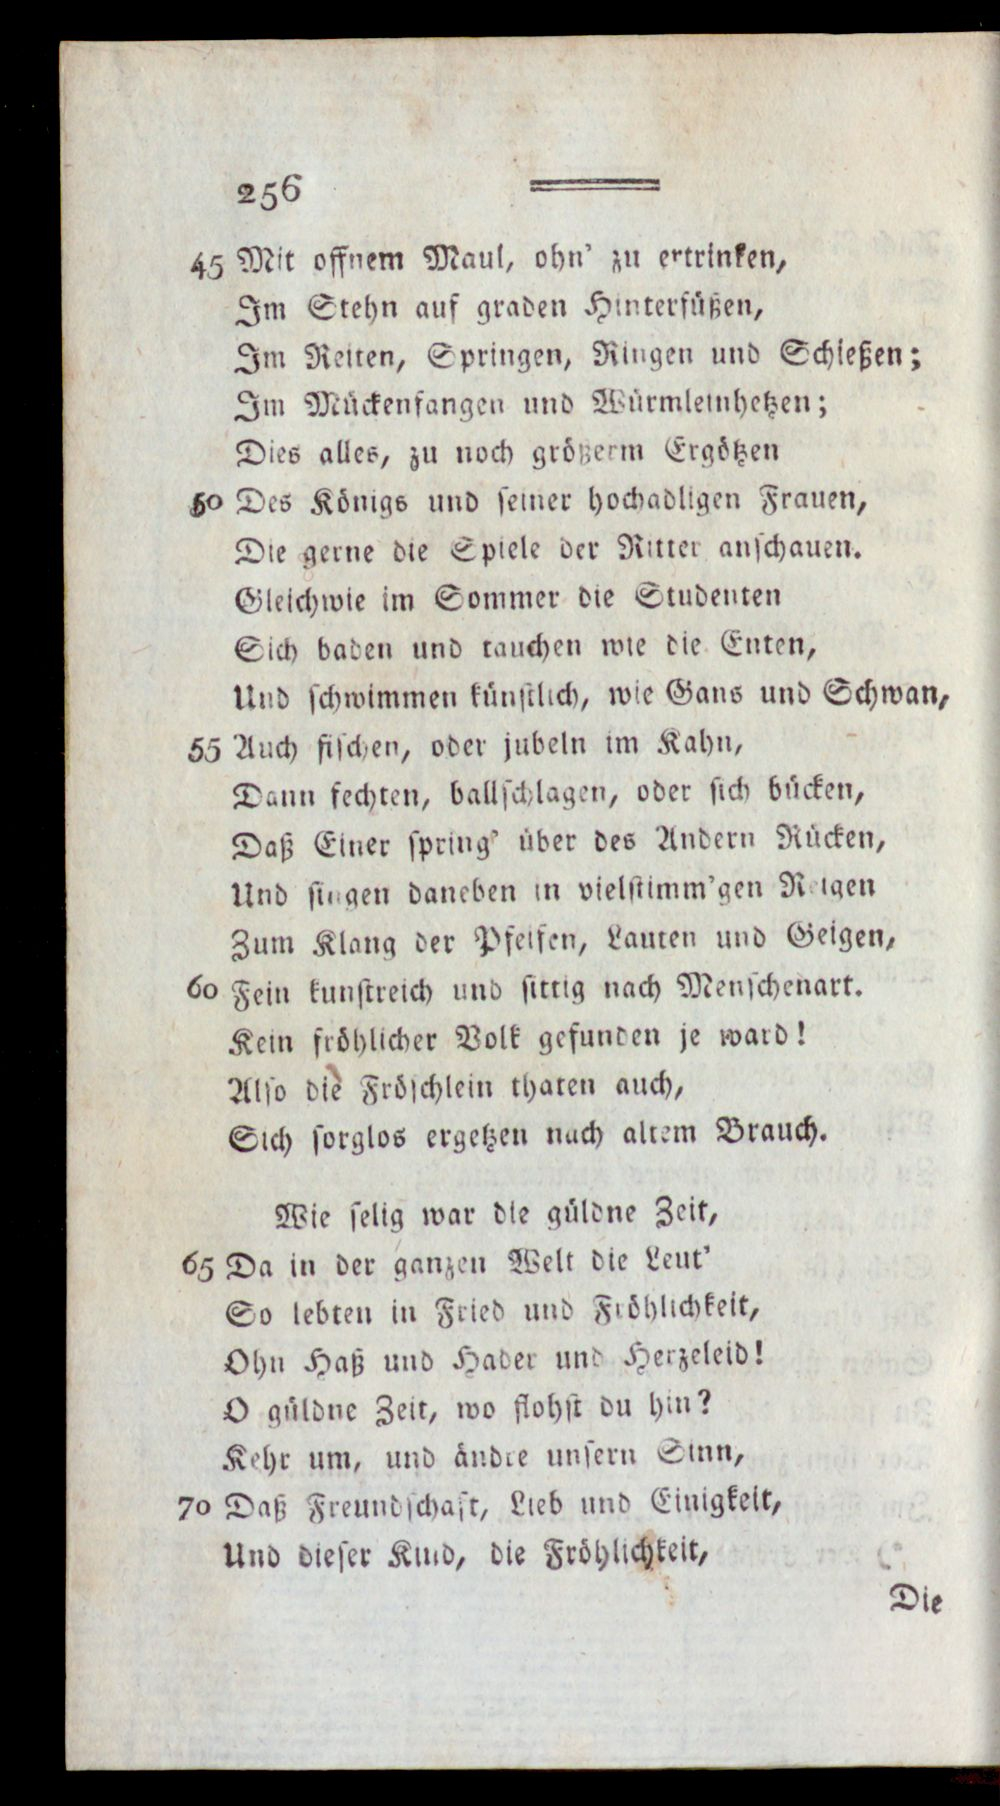 256
45 Mit offnem Maul, ohn' zu ertrinken,
Im Stehn auf graden Hinterfüßen,
Im Reiten, Springen, Ringen und Schießen;
Im Mückenfangen und Würmleinhetzen;
Dies alles, zu noch größerm Ergötzen
50 Des Königs und seiner hochadligen Frauen,
Die gerne die Spiele der Ritter anschauen.
Gleichwie im Sommer die Studenten
Sich baden und tauchen wie die Enten,
Und schwimmen künstlich, wie Gans und Schwan,
55 Auch fischen, oder jubeln im Kahn,
Dann fechten, ballschlagen, oder sich bücken,
Daß Einer spring' über des Andern Rücken,
Und singen daneben in vielstimm'gen Reigen
Zum Klang der Pfeifen, Lauten und Geigen,
60 Fein kunstreich und sittig nach Menschenart.
Kein fröhlicher Volk gefunden je ward!
Also die Fröschlein thaten auch,
Sich sorglos ergetzen nach altem Brauch.
Wie selig war die güldne Zeit,
65 Da in der ganzen Welt die Leut'
So lebten in Fried und Fröhlichkeit,
Ohn Haß und Hader und Herzeleid!
O güldne Zeit, wo flohst du hin?
Kehr um, und ändre unsern Sinn,
70 Daß Freundschaft, Lieb und Einigkeit,
Und dieser Kind, die Fröhlichkeit,
Die